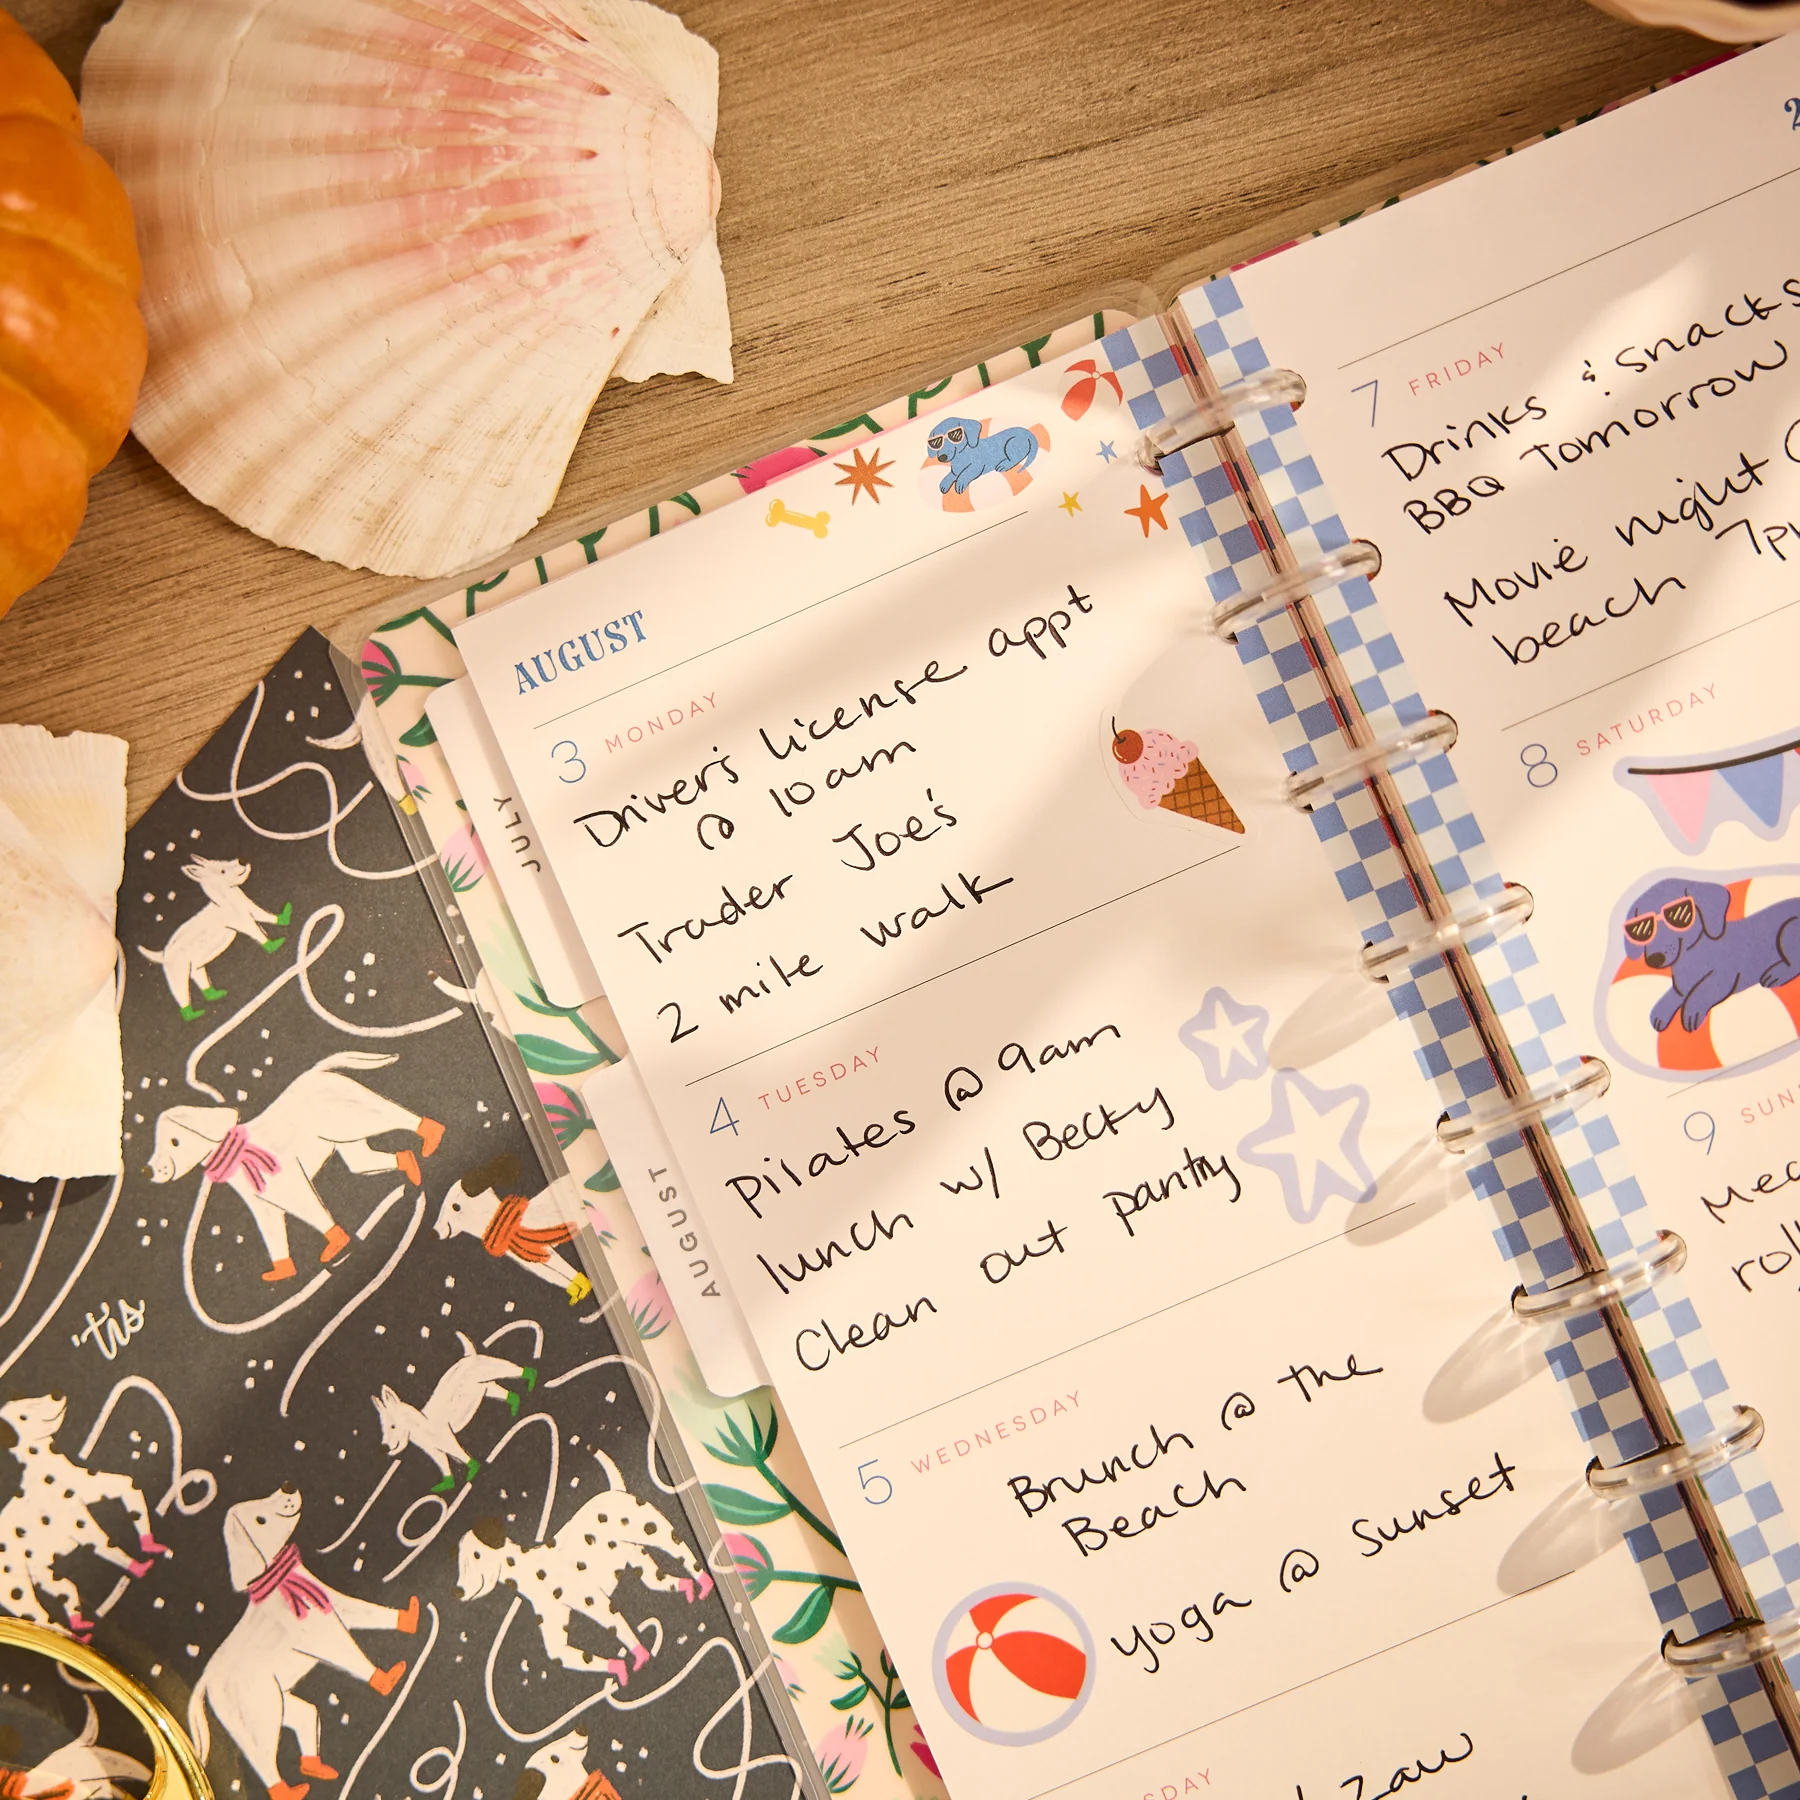 AUGUST
3 MONDAY
Driver's license appt
@ 10am
Trader Joe's
2 mile walk
4 TUESDAY
Pilates @ 9am
lunch w/ Becky
Clean out pantry
5 WEDNESDAY
Brunch @ the
Beach
yoga @ Sunset
7 FRIDAY
Drinks & Snacks
BBQ Tomorrow
Movie night
beach
8 SATURDAY
9
JULY
AUGUST
'tis